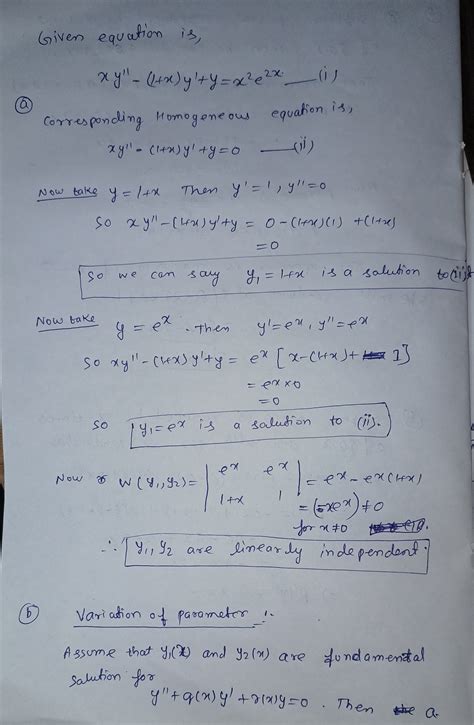 Given equation is,
xy'' - (1+x)y' + y = x²e²ˣ —(i)
(a) Corresponding Homogeneous equation is,
xy'' - (1+x)y' + y = 0 —(ii)
Now take y = 1+x Then y' = 1, y'' = 0
So xy'' - (1+x)y' + y = 0 - (1+x)(1) + (1+x)
= 0
So we can say y₁ = 1+x is a solution to (ii)
Now take y = eˣ. Then y' = eˣ, y'' = eˣ
So xy'' - (1+x)y' + y = eˣ [x - (1+x) + 1]
= eˣ × 0
= 0
So y₁ = eˣ is a solution to (ii).
Now W(y₁, y₂) = | eˣ eˣ | = eˣ - eˣ(1+x)
| 1+x 1 | = (-xeˣ) ≠ 0
for x ≠ 0
∴ y₁, y₂ are linearly independent.
(b) Variation of parameter :-
Assume that y₁(x) and y₂(x) are fundamental
solution for
y'' + q(x)y' + r(x)y = 0. Then a